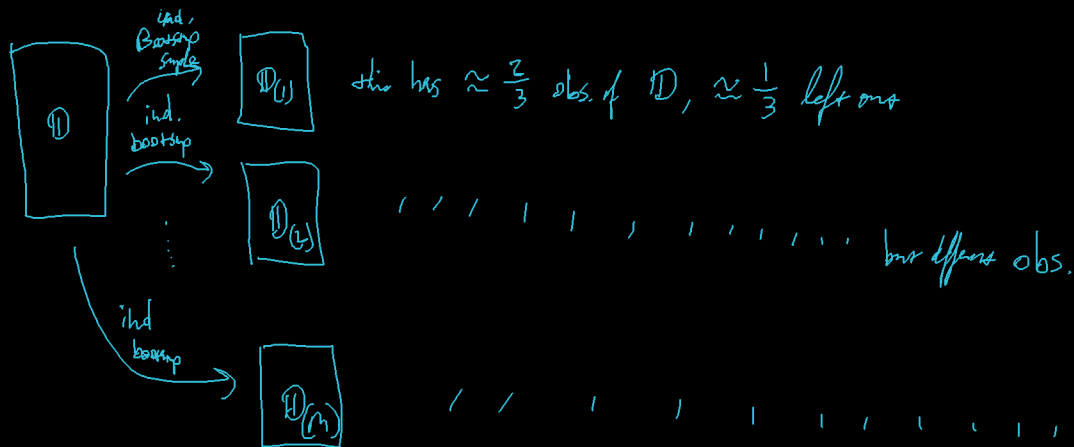 ind.
Bootstrap
sample
𝔻
𝔻(1) this has ≈ 2/3 obs. of 𝔻, ≈ 1/3 left out
ind.
bootstrap
𝔻(2) , , , , , , , , , , , , but different obs.
ind
bootstrap
𝔻(M) , , , , , , , , , , ,